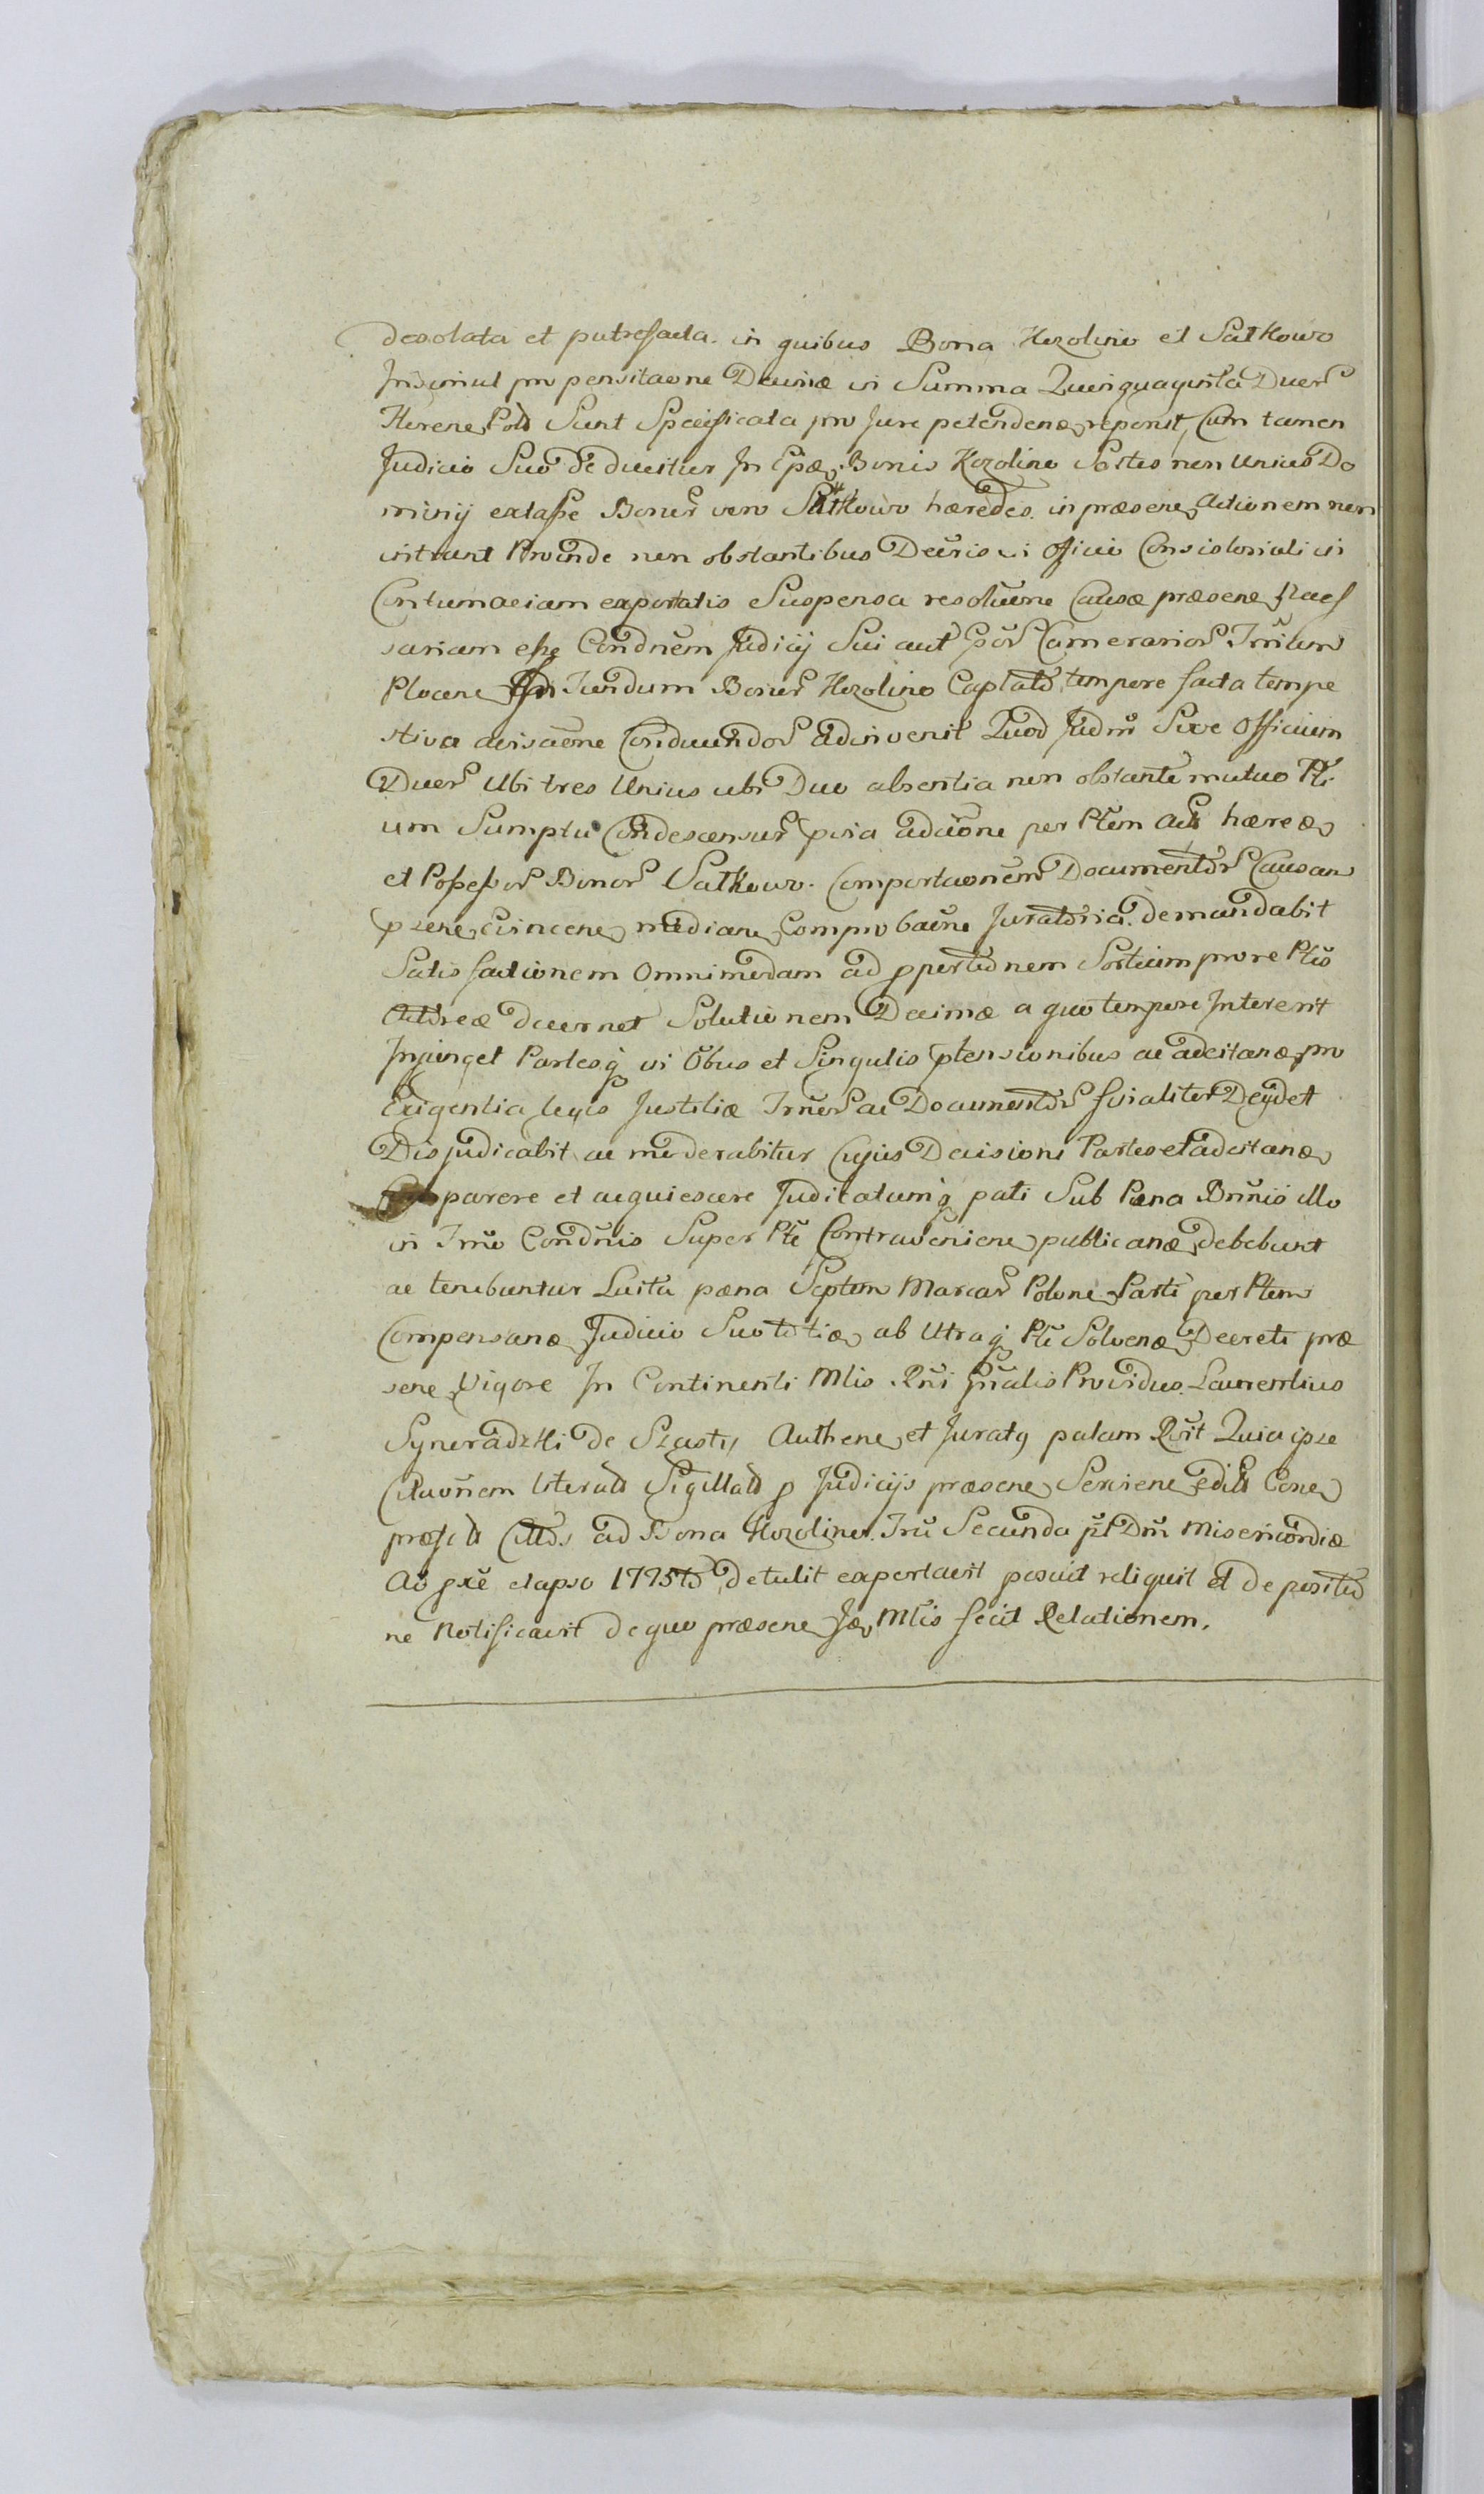 desolata et putrefacta. in quibus Bona Kozolino et Satkowo
Insimul pro pensitaõne Decimæ in Summa Quinquaginta Duor
Floren Pold Sunt Specificata pro Jure petenden reponit, Cum tamen
Judicio Suo deducitur In Bonis Kozolino Sortes non Unius Do
minij extasse Bonor vero Satkowo hæredes. in præsen Actionem non
intrant Proinde non obstantibus Decris in Officio Consistoriali in
Contumaciam exportatis Suspensa resolũone Causæ præsen necess
sariam esse Condnẽm Judicij Sui aut Camerarior Trrium
Plocen Fundum Bonor Kozolino Captatd tempore facta tempe
stiva avisaõne Conducendor adinvenit Quod Judm Sive Officium
Duor Ubi tres Unius ubi Duo absentia non obstante mutuo Pti
um Sumptu Condescensur pvia adciõne per Ptem hæred
et Possessor Bonor Satkowo. Comportaonẽm Documentor Causam
pzen Cincen median Comprobaõne Juratoria. demandabit
Satisfactionem Omnimodam ad pportiõnem Sortium pro re Ptis
Actoreæ decernet Solutionem Decimæ a quo tempore Intererit
Injunget Partesq in Obus et Singulis ptensionibus ac adcitan pro
Exigentia legis Justitiæ Trrier ac Documentor finaliter Decidet
Disjudicabit ac moderabitur Cujus Decisioni Partes et adcitan
parere et acquiescere Judicatumq pati Sub Pæna Bnnis illo
in Trro Condnis Super Pte Contravenien publican debebunt
ac tenebuntur Luita pæna Septem Marcar Polon Parti per Ptem
Compensan Judicio Suo ab Utraq Pte Solven Decreti præ
sen Vigore In Continenti Mtis Rni Gnalis Providus Laurentius
Syneradzki de Szasty, Authen et Juratq palam Rcit Quia ipse
Citaonem literatd Sigillatd p Judicijs præsen Servien editd Cone
præfid Citds ad Bona Kozolino. Fria Secunda pt Dm Misericordiæ
Ao pxe elapso 1775td detulit exportavit posuit reliquit et de positio
ne Notificavit de quo præsen Jo Mtis fecit Relationem.